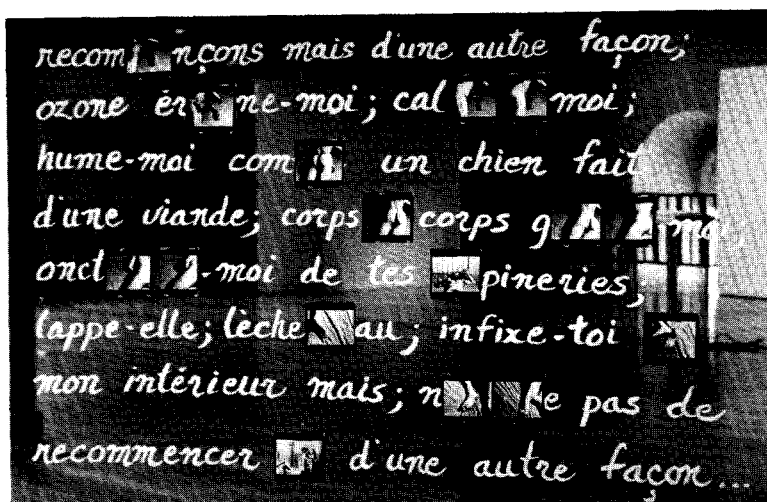 recom nçons mais d'une autre façon;
ozone ér ne-moi; cal moi;
hume-moi com un chien fait
d'une viande; corps corps g moi,
onct -moi de tes pineries,
lappe-elle; lèche au; infixe-toi
mon intérieur mais; n e pas de
recommencer d'une autre façon...